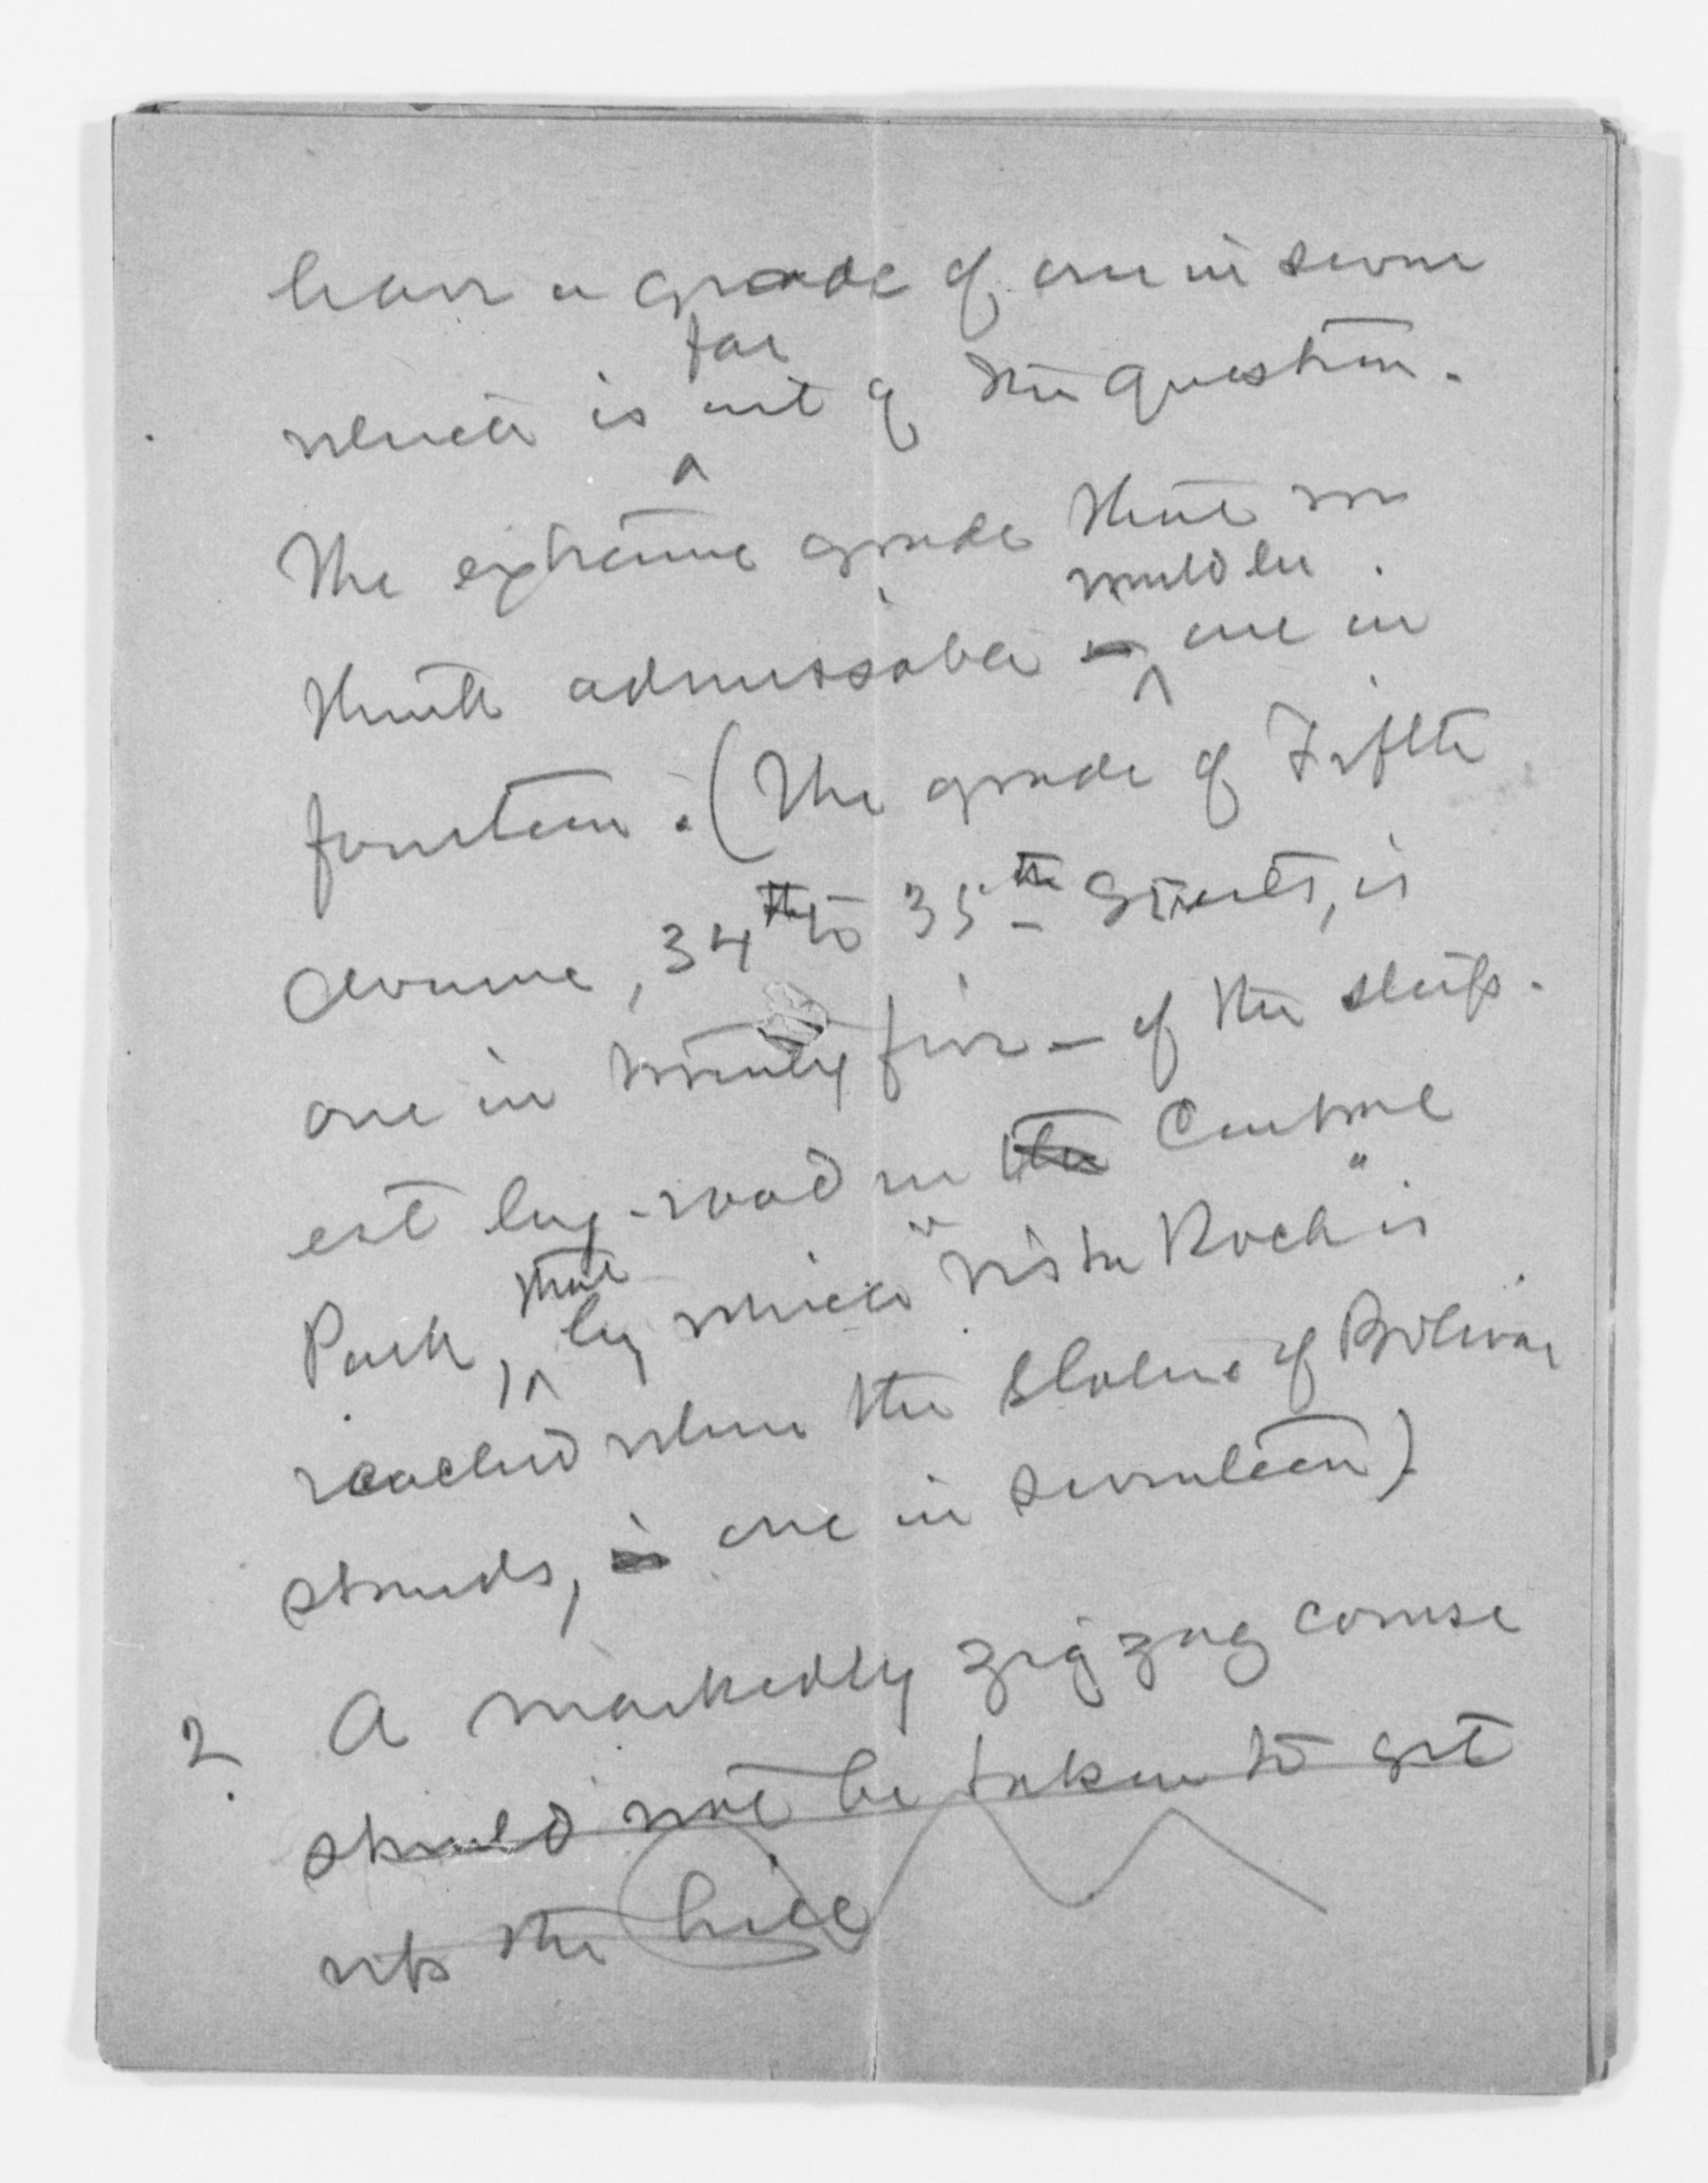 have a grade of one in seven
far
which is out of the question.
The extreme grade that we
would be
think admissable is one in
fourteen. (The grade of Fifth
Avenue, 34th to 35th Streets, is
one in twenty five — of the steep-
est leg-road in the Central
that
Park, by which "Vista Rock" is
reached where the Statue of Bolivar
stands, is one in seventeen).
2. A markedly zigzag course
should not be taken to get
up the hill